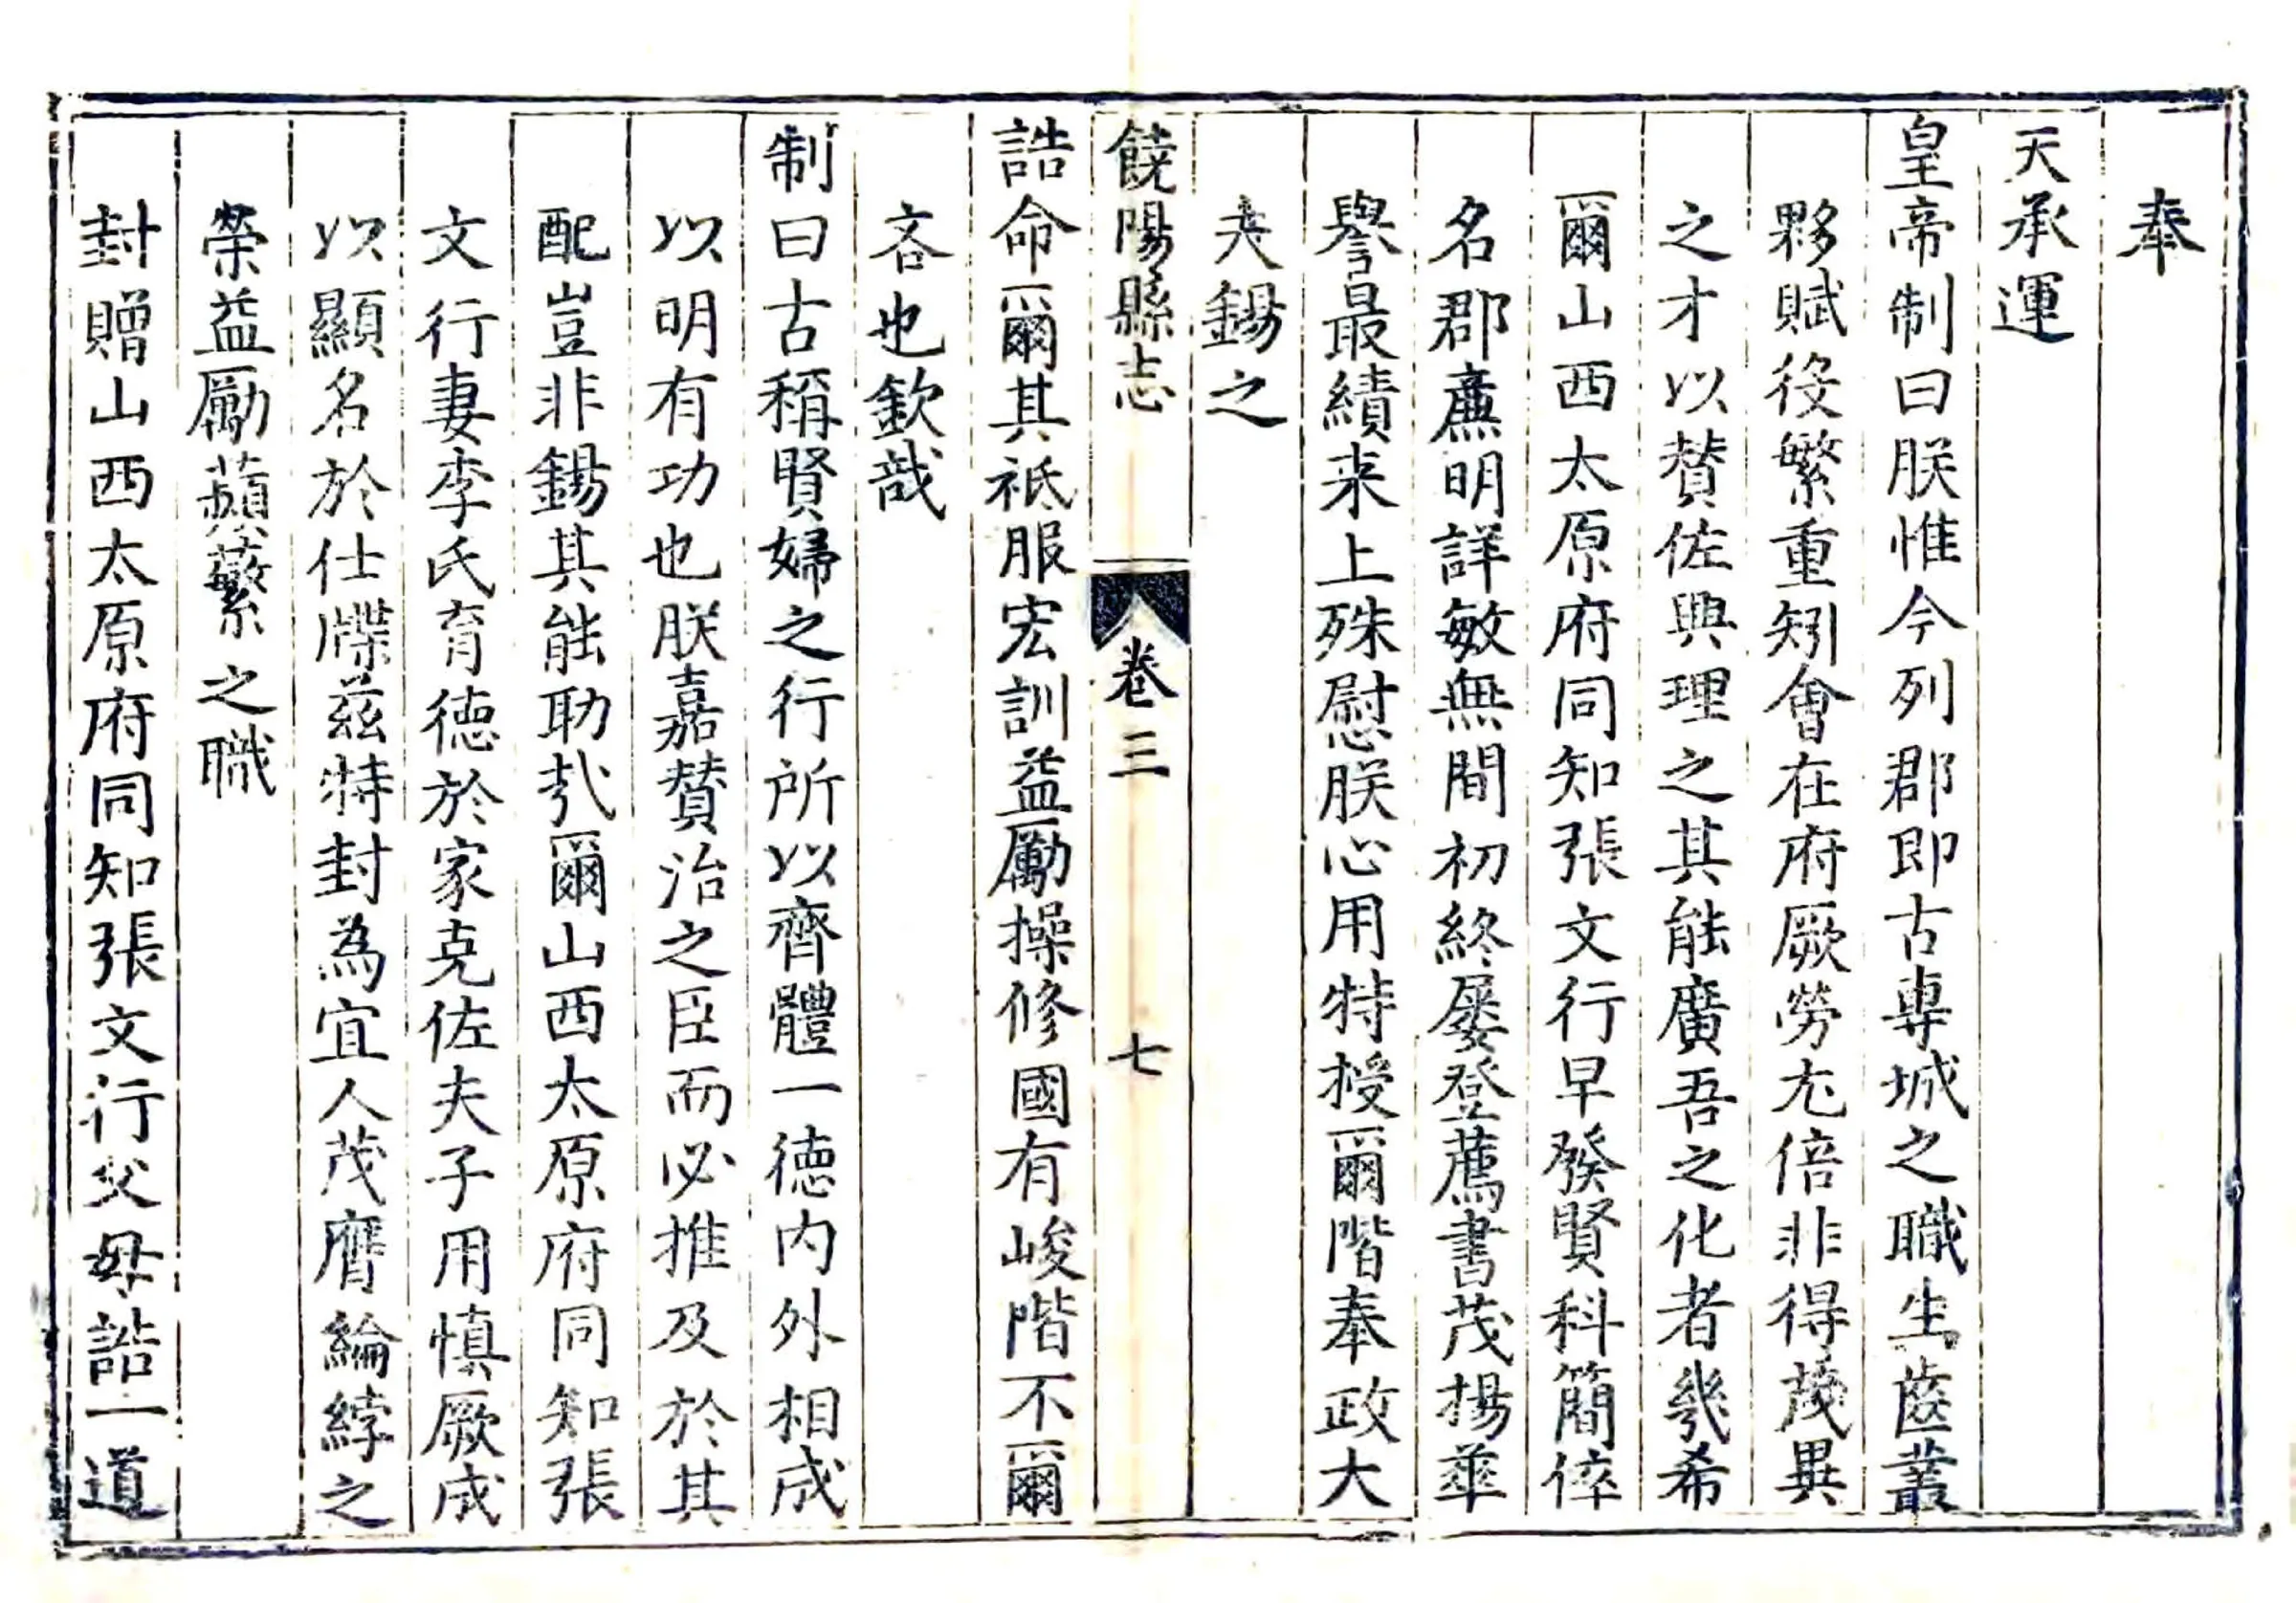 奉
天承運
皇帝制曰朕惟今列郡即古專城之職生齒叢
夥賦役繁重矧會在府厥勞尤倍非得茂異
之才以賛佐興理之其能廣吾之化者幾希
爾山西太原府同知張文行早發賢科簡倅
名郡廉明詳敏無間初終屡登薦書茂揚華
譽最績来上殊慰朕心用特授爾階奉政大
夫錫之
饒陽縣志 卷三 七
誥命爾其祗服宏訓益勵操修國有峻階不爾
吝也欽哉
制曰古稱賢婦之行所以齊體一德内外相成
以明有功也朕嘉賛治之臣而必推及於其
配豈非錫其能助㢤爾山西太原府同知張
文行妻李氏育德於家克佐夫子用慎厥成
以顯名於仕牒兹特封為宜人茂膺綸綍之
榮益勵蘋蘩之職
封贈山西太原府同知張文行父母誥一道